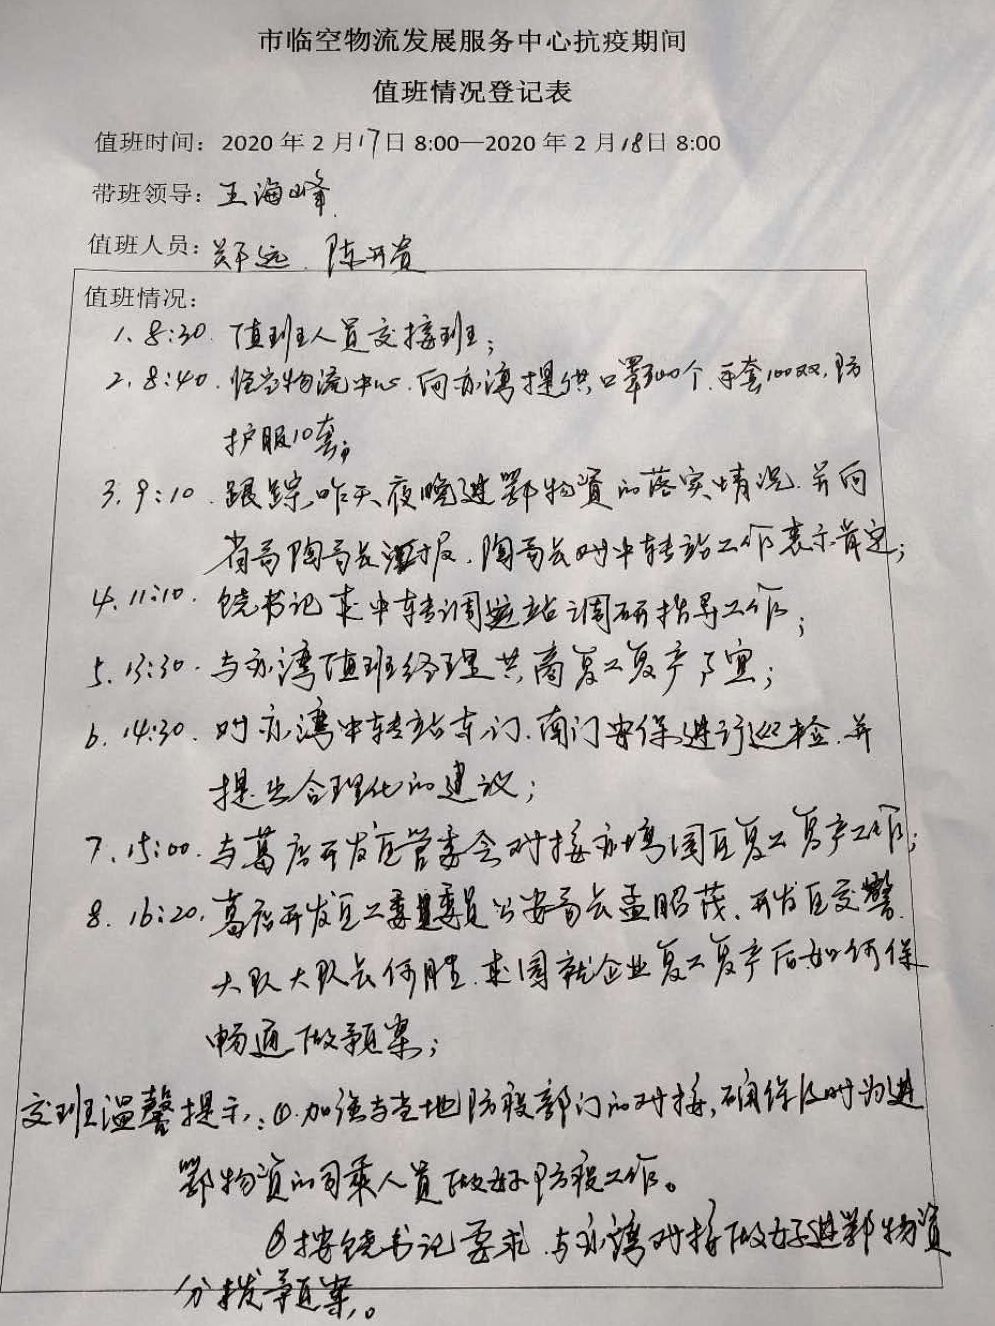 市临空物流发展服务中心抗疫期间
值班情况登记表
值班时间：2020 年 2 月17日 8:00—2020 年 2 月18日 8:00
带班领导：王海峰
值班人员：郑远、陈开贵
值班情况：
1、8:30、值班人员交接班；
2、8:40、临空物流中心、向亦湾提供口罩300个、手套100双、防
护服10套；
3、9:10、跟踪昨天夜晚进鄂物资的落实情况、并向
省局陶局长汇报、陶局长对中转站工作表示肯定；
4、11:10、饶书记来中转调运站调研指导工作；
5、13:30、与亦湾值班经理共商复工复产事宜；
6、14:30、对亦湾中转站东门、南门安保进行巡检、并
提出合理化的建议；
7、15:00、与葛店开发区管委会对接亦湾园区复工复产工作；
8、16:20、葛店开发区工委委员公安局长孟昭茂、开发区交警
大队大队长何胜、来园就企业复工复产后如何保
畅通做预案；
交班温馨提示：①加强与当地防疫部门的对接，确保及时为进
鄂物资的司乘人员做好防疫工作。
②按饶书记要求、与亦湾对接做好进鄂物资
分拨预案。